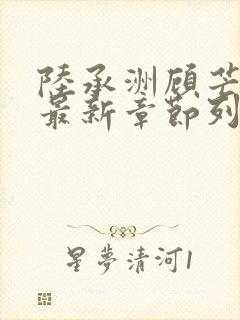 陸承洲顧芒
最新章節列
星夢清河1